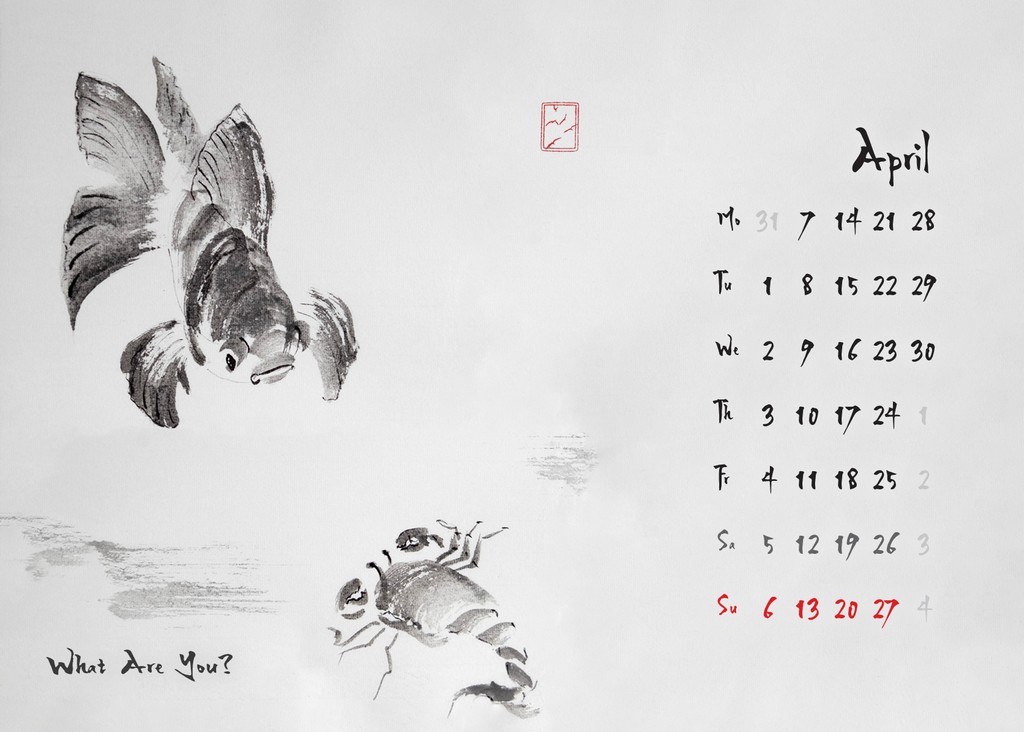 April
Mo 31 7 14 21 28
Tu 1 8 15 22 29
We 2 9 16 23 30
Th 3 10 17 24 1
Fr 4 11 18 25 2
Sa 5 12 19 26 3
Su 6 13 20 27 4
What Are You?